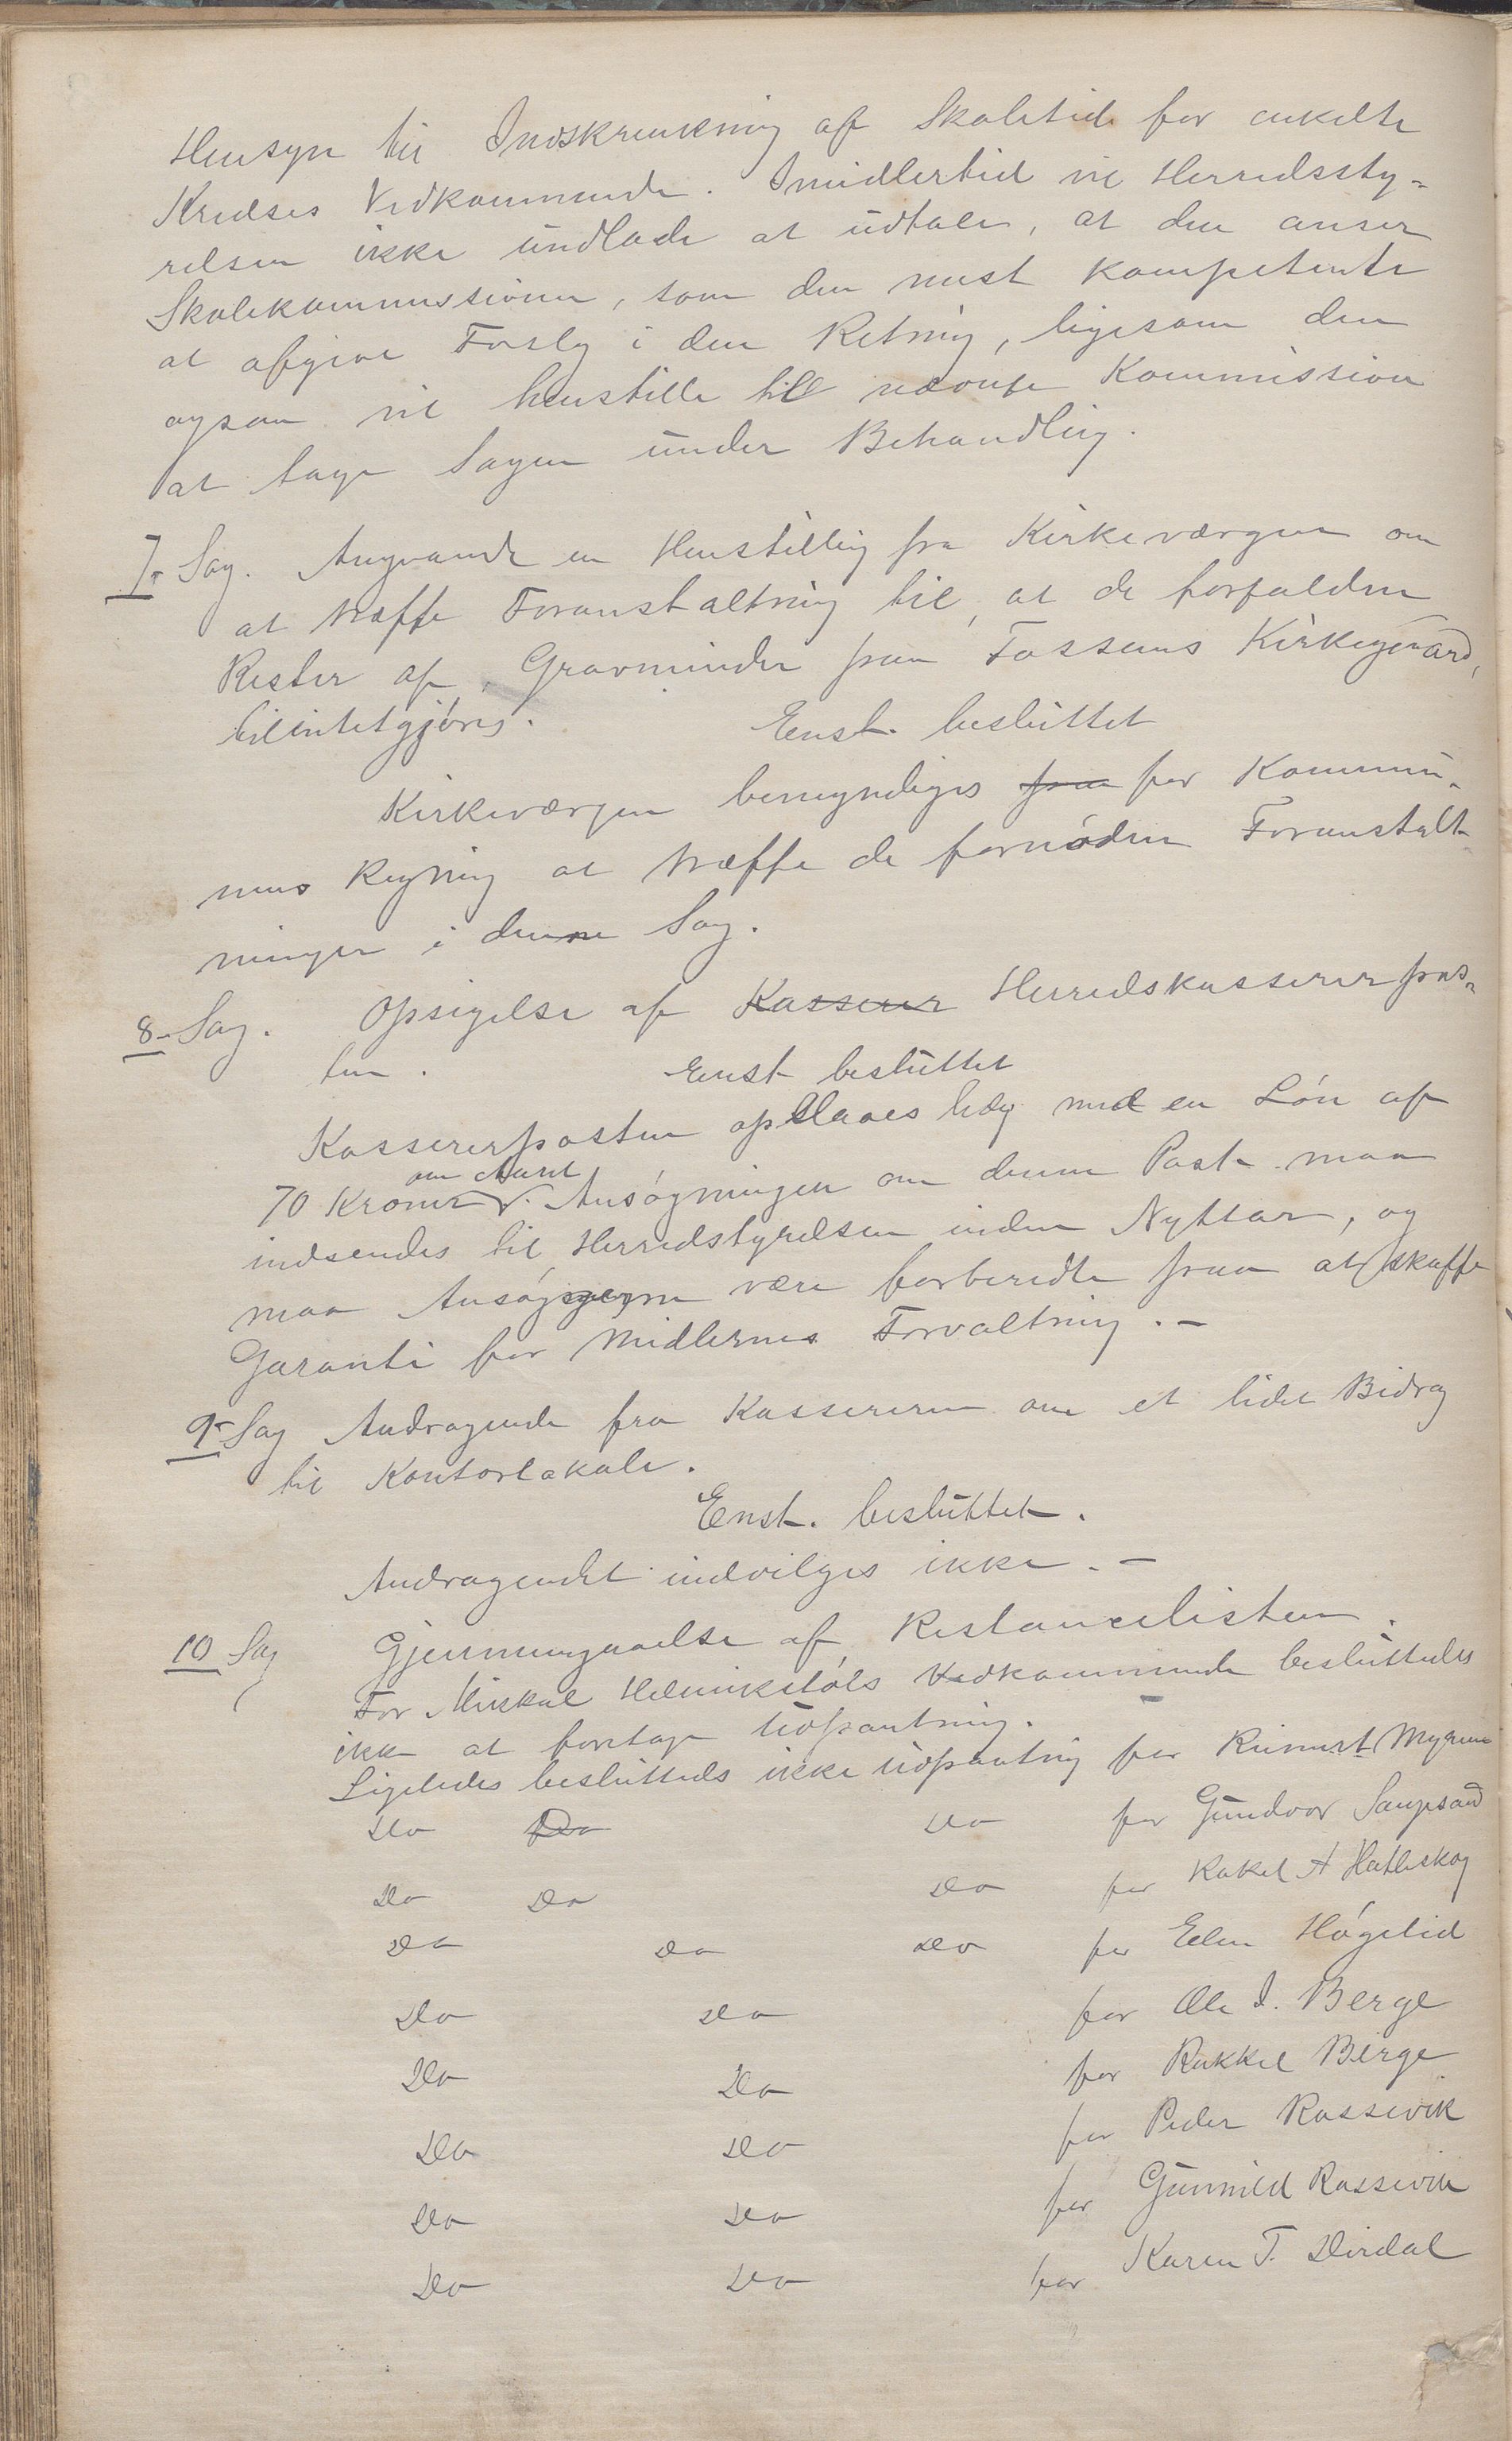 Hensyn til Indskrenkning af Skoletid for enkelte
Kredses Vedkommende. Imidlertid vil Herredssty-
relsen ikke undlade at udtale, at den anser
Skolekommissionen, som den mest kompetente
at afgive Forslg i den Retning, ligesom den
ogsaa vil henstille till nævnte Kommission
at tage Sagen under Behandling.
7- Sag. Angaaende en Henstilling fra Kirkeværgen om
at træffe Foranstaltning til, at de forfaldne
Rester af Gravminder paa Fossens Kirkegaard,
tilintetgjøres. Enst. besluttet
Kirkeværgen bemyndiges paa for Kommu-
nens Regning at træffe de fornødne Foranstalt-
ninger i denne Sag.
8- Sag. Opsigelse af Kasserer Herredskassererpos-
ten. Enst besluttet
Kassererposten opslaaes ledig med en Løn af
70 Kroner om Aaret. Ansøgningen om denne Post maa
indsendes til Herredstyrelsen inden Nyttaar, og
maa Ansøgerne være forberedte paa at skaffe
Garanti for Midlernes Forvaltning. -
9- Sag Andragende fra Kassereren om et lidet Bidrag
til Kontorlokale.
Enst. besluttet.
Andragendet indvilges ikke. -
10 Sag Gjennemgaaelse af Restancelisten.
For Mikkal Helmikstøls Vedkommende besluttedes
ikke at foretage Udpantning.
Ligeledes besluttedes ikke Udpantning for Rimert Myrene
Do Do Do for Gundvor Sangesand
Do Do Do for Rakel A Hatleskog
Do Do Do for Elen Høgelid
Do Do for Ole I. Berge
Do Do for Rakkel Berge
Do Do for Peder Rossevik
Do Do for Gunnild Rossevik
Do Do for Karen T. Dirdal